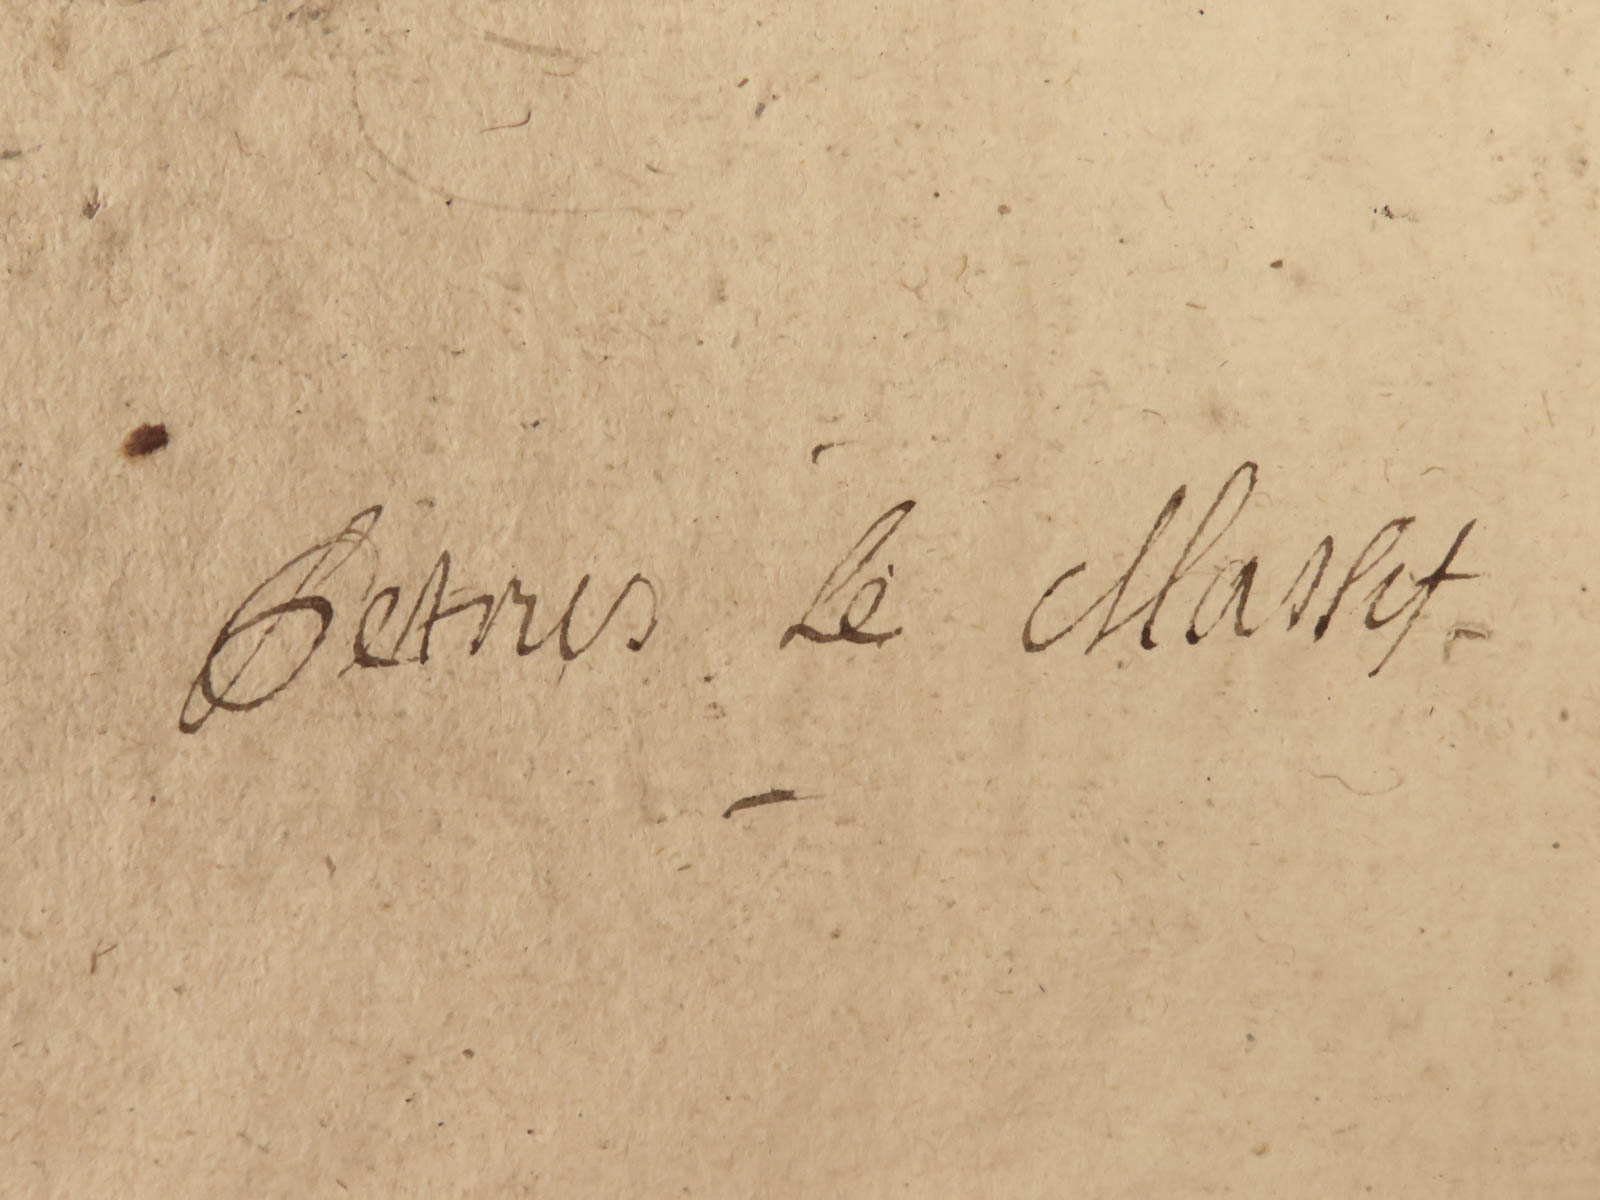 Petrus Le Massif.